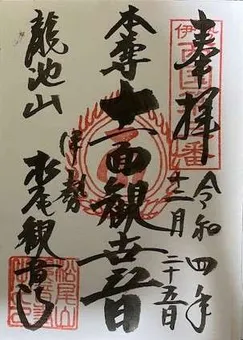 奉拝
令和四年
十二月二十五日
本尊
十一面観世音
伊勢
龍池山
松尾観音寺